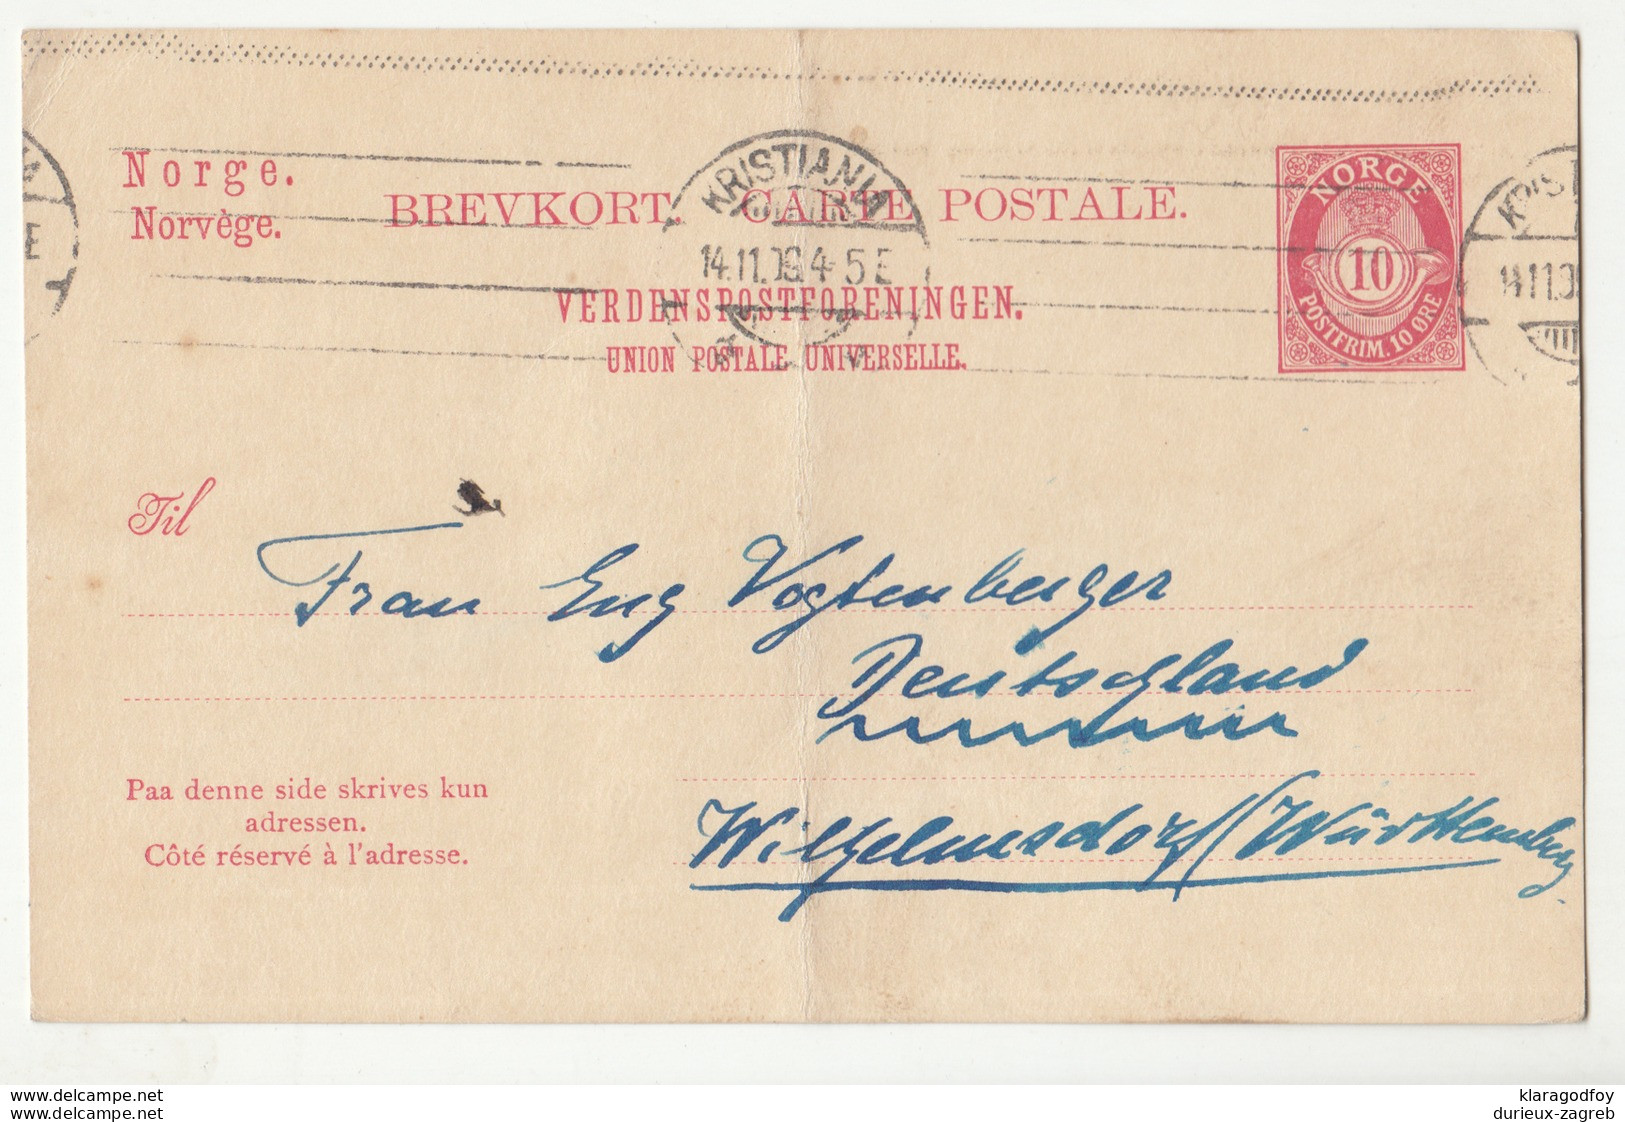 Norge.
Norvège.
BREVKORT. CARTE POSTALE.
KRISTIANIA
14.11.09.4-5E
VERDENSPOSTFORENINGEN.
UNION POSTALE UNIVERSELLE.
NORGE
10
POSTFRIM. 10 ØRE
Til
Frau Eug Vogtenberger
Deutschland
Paa denne side skrives kun
adressen.
Côté réservé à l'adresse.
Wilhelmsdorf (Württemberg
klaragodfoy
delcampe.net
durieux-zagreb
delcampe.net